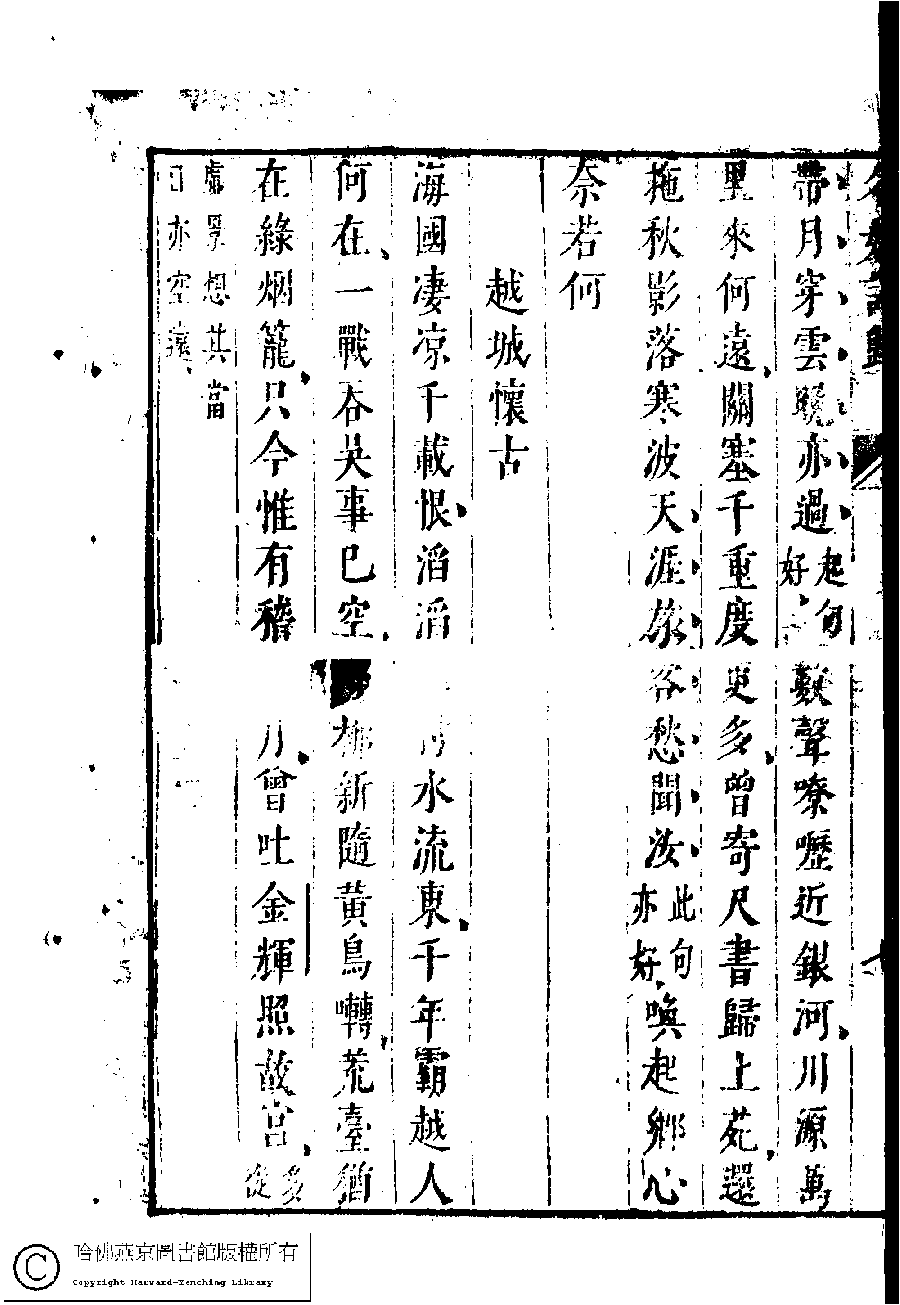 名媛詩歸
帶月穿雲曉亦過起句好數聲嘹嚦近銀河川源萬
里來何遠關塞千重度更多曾寄尺書歸上苑還
拖秋影落寒波天涯旅客愁聞汝此句亦好喚起鄉心
奈若何
越城懷古
海國凄凉千載恨滔滔水流東千年霸越人
何在一戰吞吳事已空柳新隨黃鳥囀荒臺猶
在綠烟籠只今惟有稽月曾吐金輝照故宮多從
處想其當
日亦空
哈佛燕京圖書館版權所有
Copyright Harvard-Yenching Library